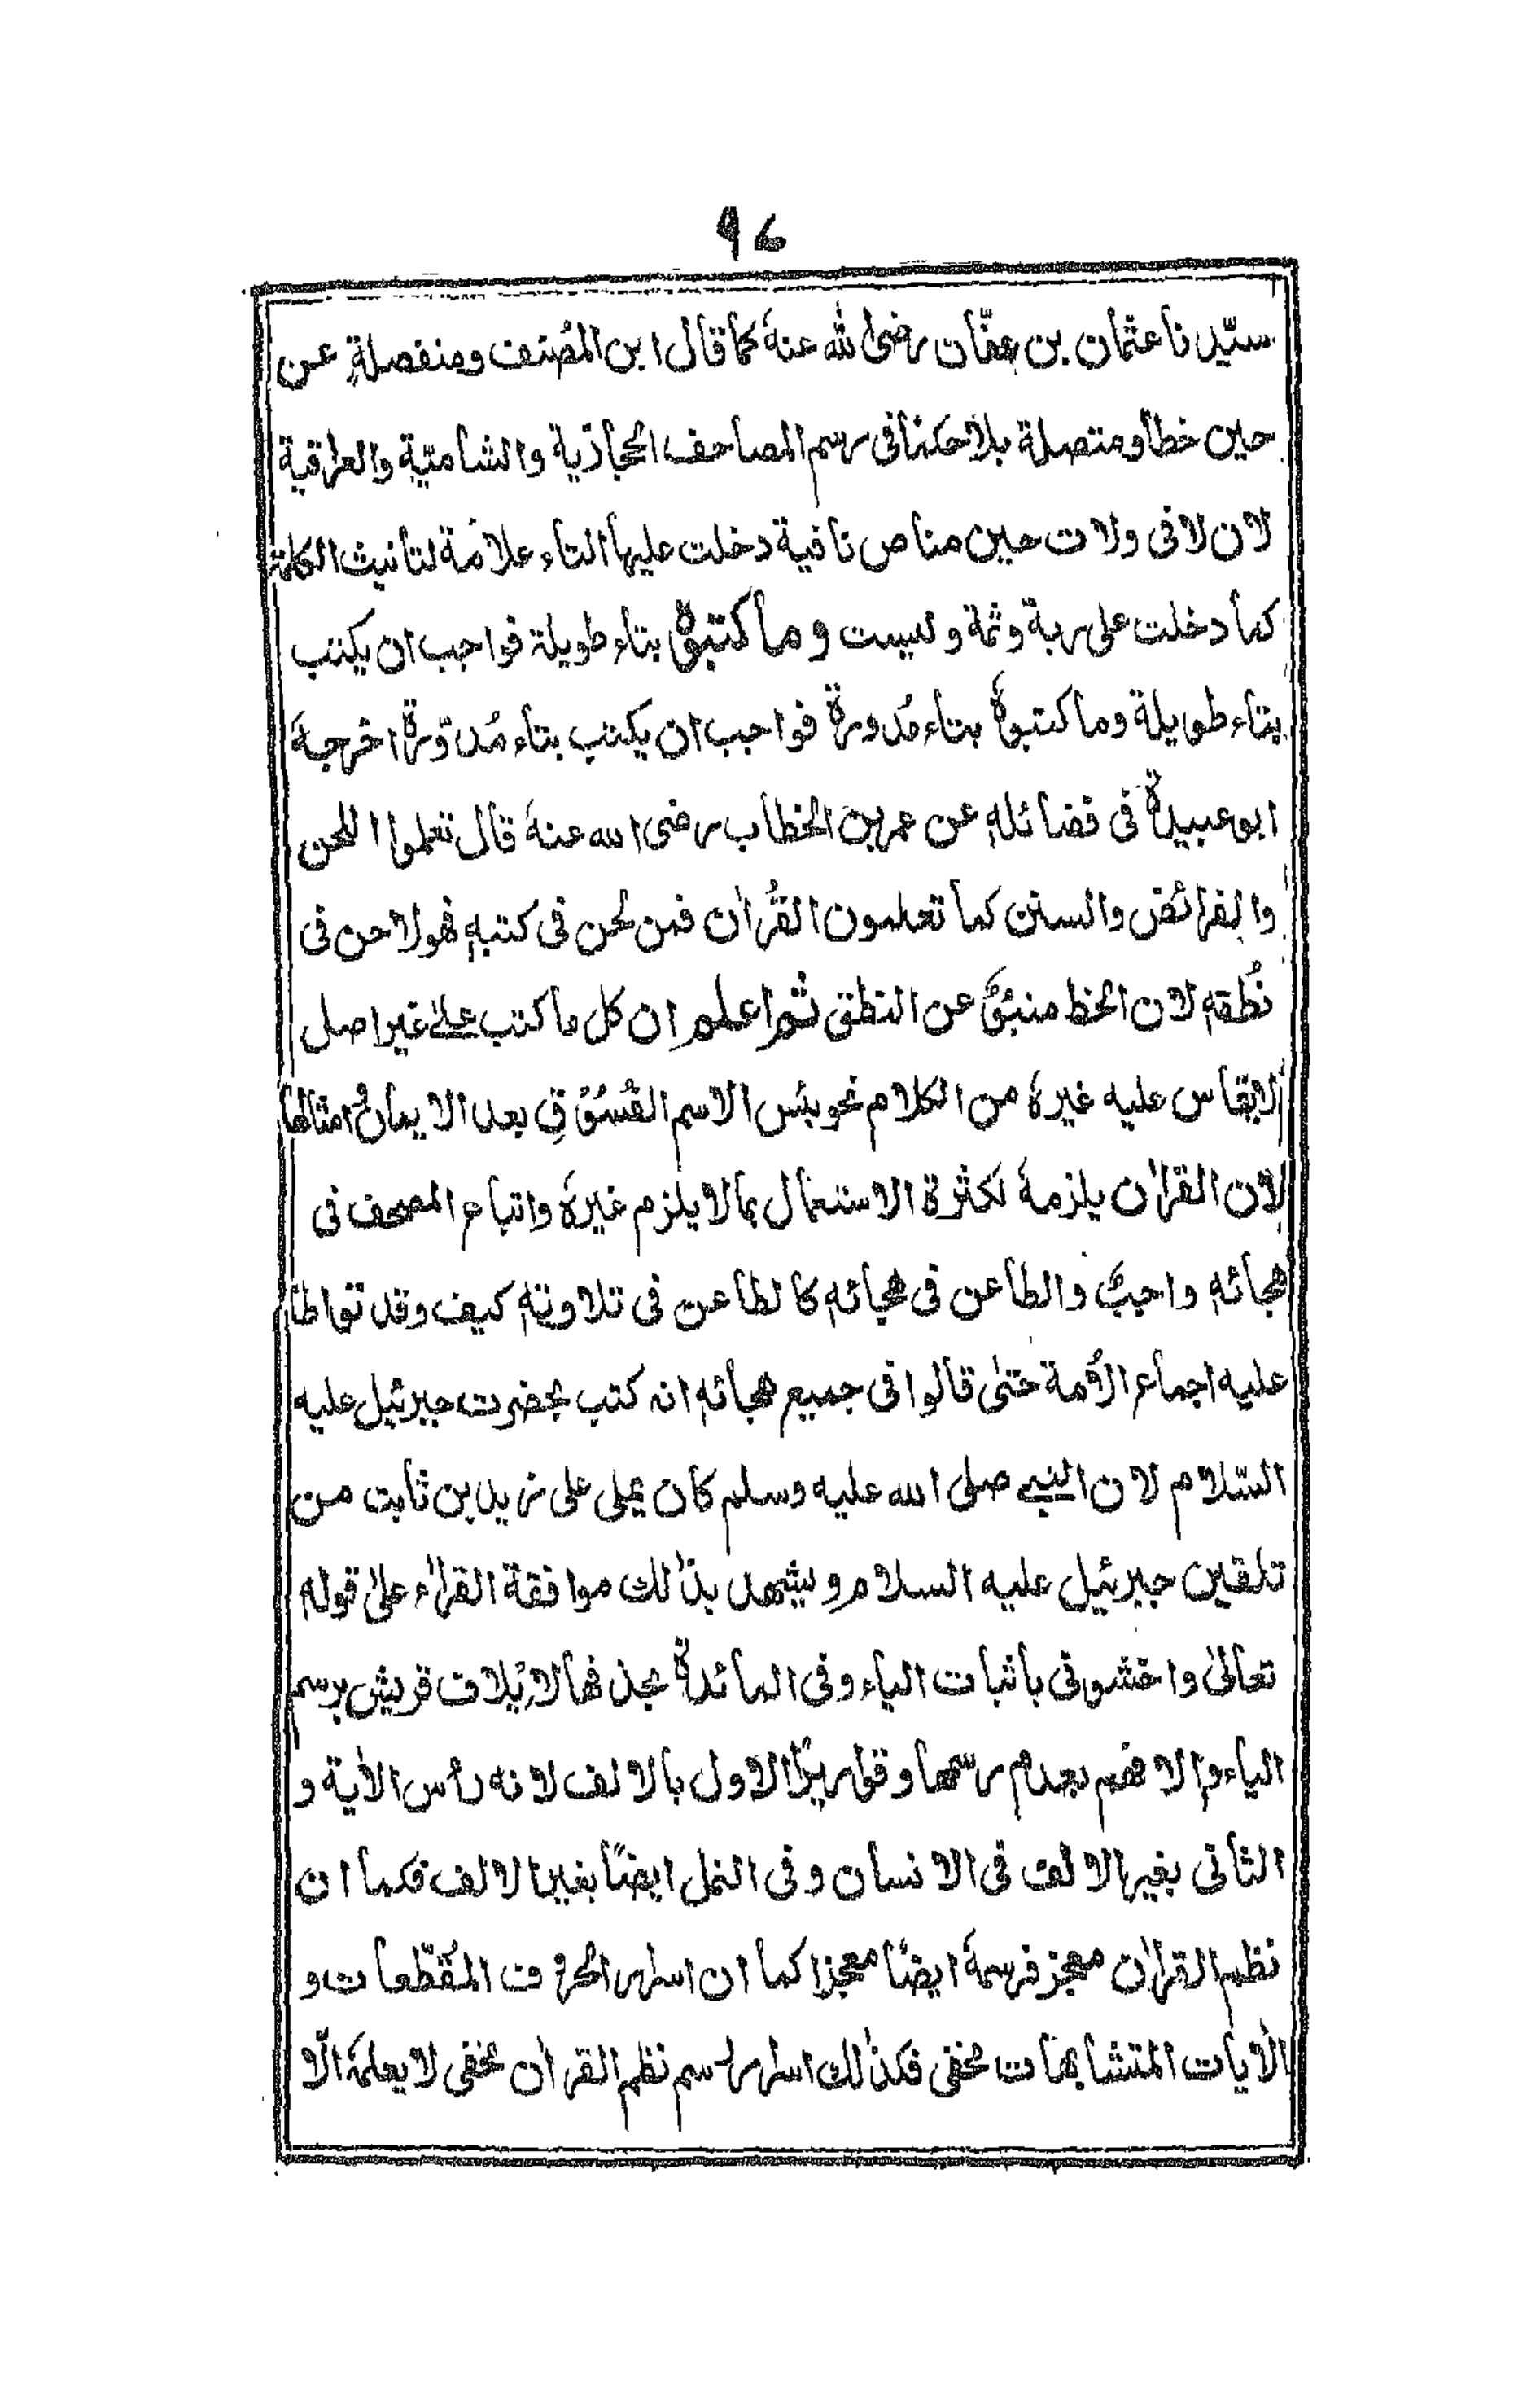 ٩٤
سيّدنا عثمان بن عفّان رضی الله عنهٗ كما قال ابن المُصَنف ومنفصلةٍ عن
حين خطأ ومتصلة بلا حكنا فى رسم المصاحف الحجازية والشاميّة والعراقية
لان لا فى ولات حين مناص نافية دخلت عليها التاء علامة لتانيث الكلمة
كما دخلت على ربة وثمة وليست وما كتبوهٗ بتاء طويلة فواجب ان يكتب
بتاء طويلة وما كتبوهٗ بتاء مُدورة فواجب ان يكتب بتاء مُدوّرة اخرجهٗ
ابو عبيدة فى فضائلهٖ عن عمر بن الخطاب رضى الله عنهٗ قال تعلموا اللحن
والفرائض والسنن كما تعلمون القُراٰن فمن لحن فى كتبهٖ فهو لاحن فى
نُطقهٖ لان الخط منبئٌ عن النطق ثم اعلم ان كل ما كتب علىٰ غير اصل
لا يقاس عليه غيرهٗ من الكلام نحو بئس الاسم الفُسُوْق بعد الايمان وامثالها
لان القراٰن يلزمهٗ لكثرة الاستعمال بما لا يلزم غيرهٗ واتباع المصحف فى
هجائهٖ واجبٌ والطاعن فى هجائهٖ كالطاعن فى تلاوتهٖ كيف وقد تواطأ
عليه اجماع الاُمة حتىٰ قالوا فى جميع هجائهٖ انه كتب بحضرت جبرئيل عليه
السّلام لان النبى صلى الله عليه وسلم كان يملى على زيد بن ثابت من
تلقين جبرئيل عليه السلام ويشهد بذٰلك موافقة القراٰء علىٰ قولهٖ
تعالىٰ واخشونى باثبات الياء وفى المائدة بحذفها لاِيْلاف قريش برسم
الياء والافهم بعدم رسمها وقواريرًا الاول بالالف لانه رأس الاٰية و
الثانى بغير الالف فى الانسان وفى النمل ايضًا بغير الالف فكما ان
نظم القراٰن معجز فرسمهٗ ايضًا معجزا كما ان اسرار الحروف المُقطّعات و
الاٰيات المتشابهات مخفى فكذٰلك اسرار رسم نظم القراٰن مخفى لا يعلمهٗ الّا